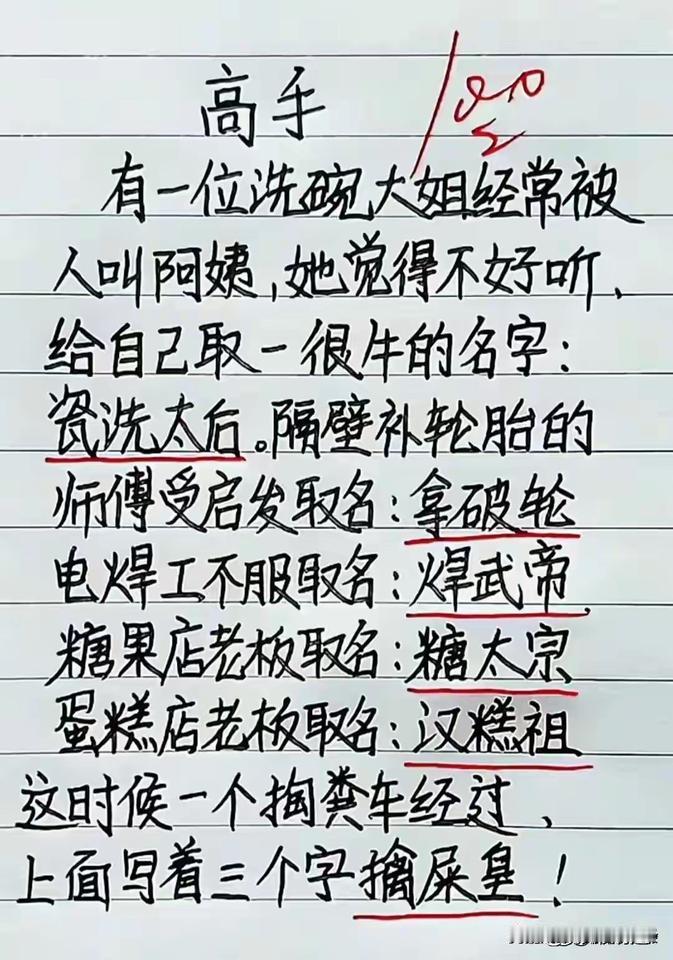 高手
有一位洗碗大姐经常被
人叫阿姨,她觉得不好听、
给自己取一很牛的名字:
瓷洗太后。隔壁补轮胎的
师傅受启发取名:拿破轮
电焊工不服取名:焊武帝、
糖果店老板取名:糖太宗
蛋糕店老板取名:汉糕祖
这时候一个掏粪车经过、
上面写着三个字擒屎皇!